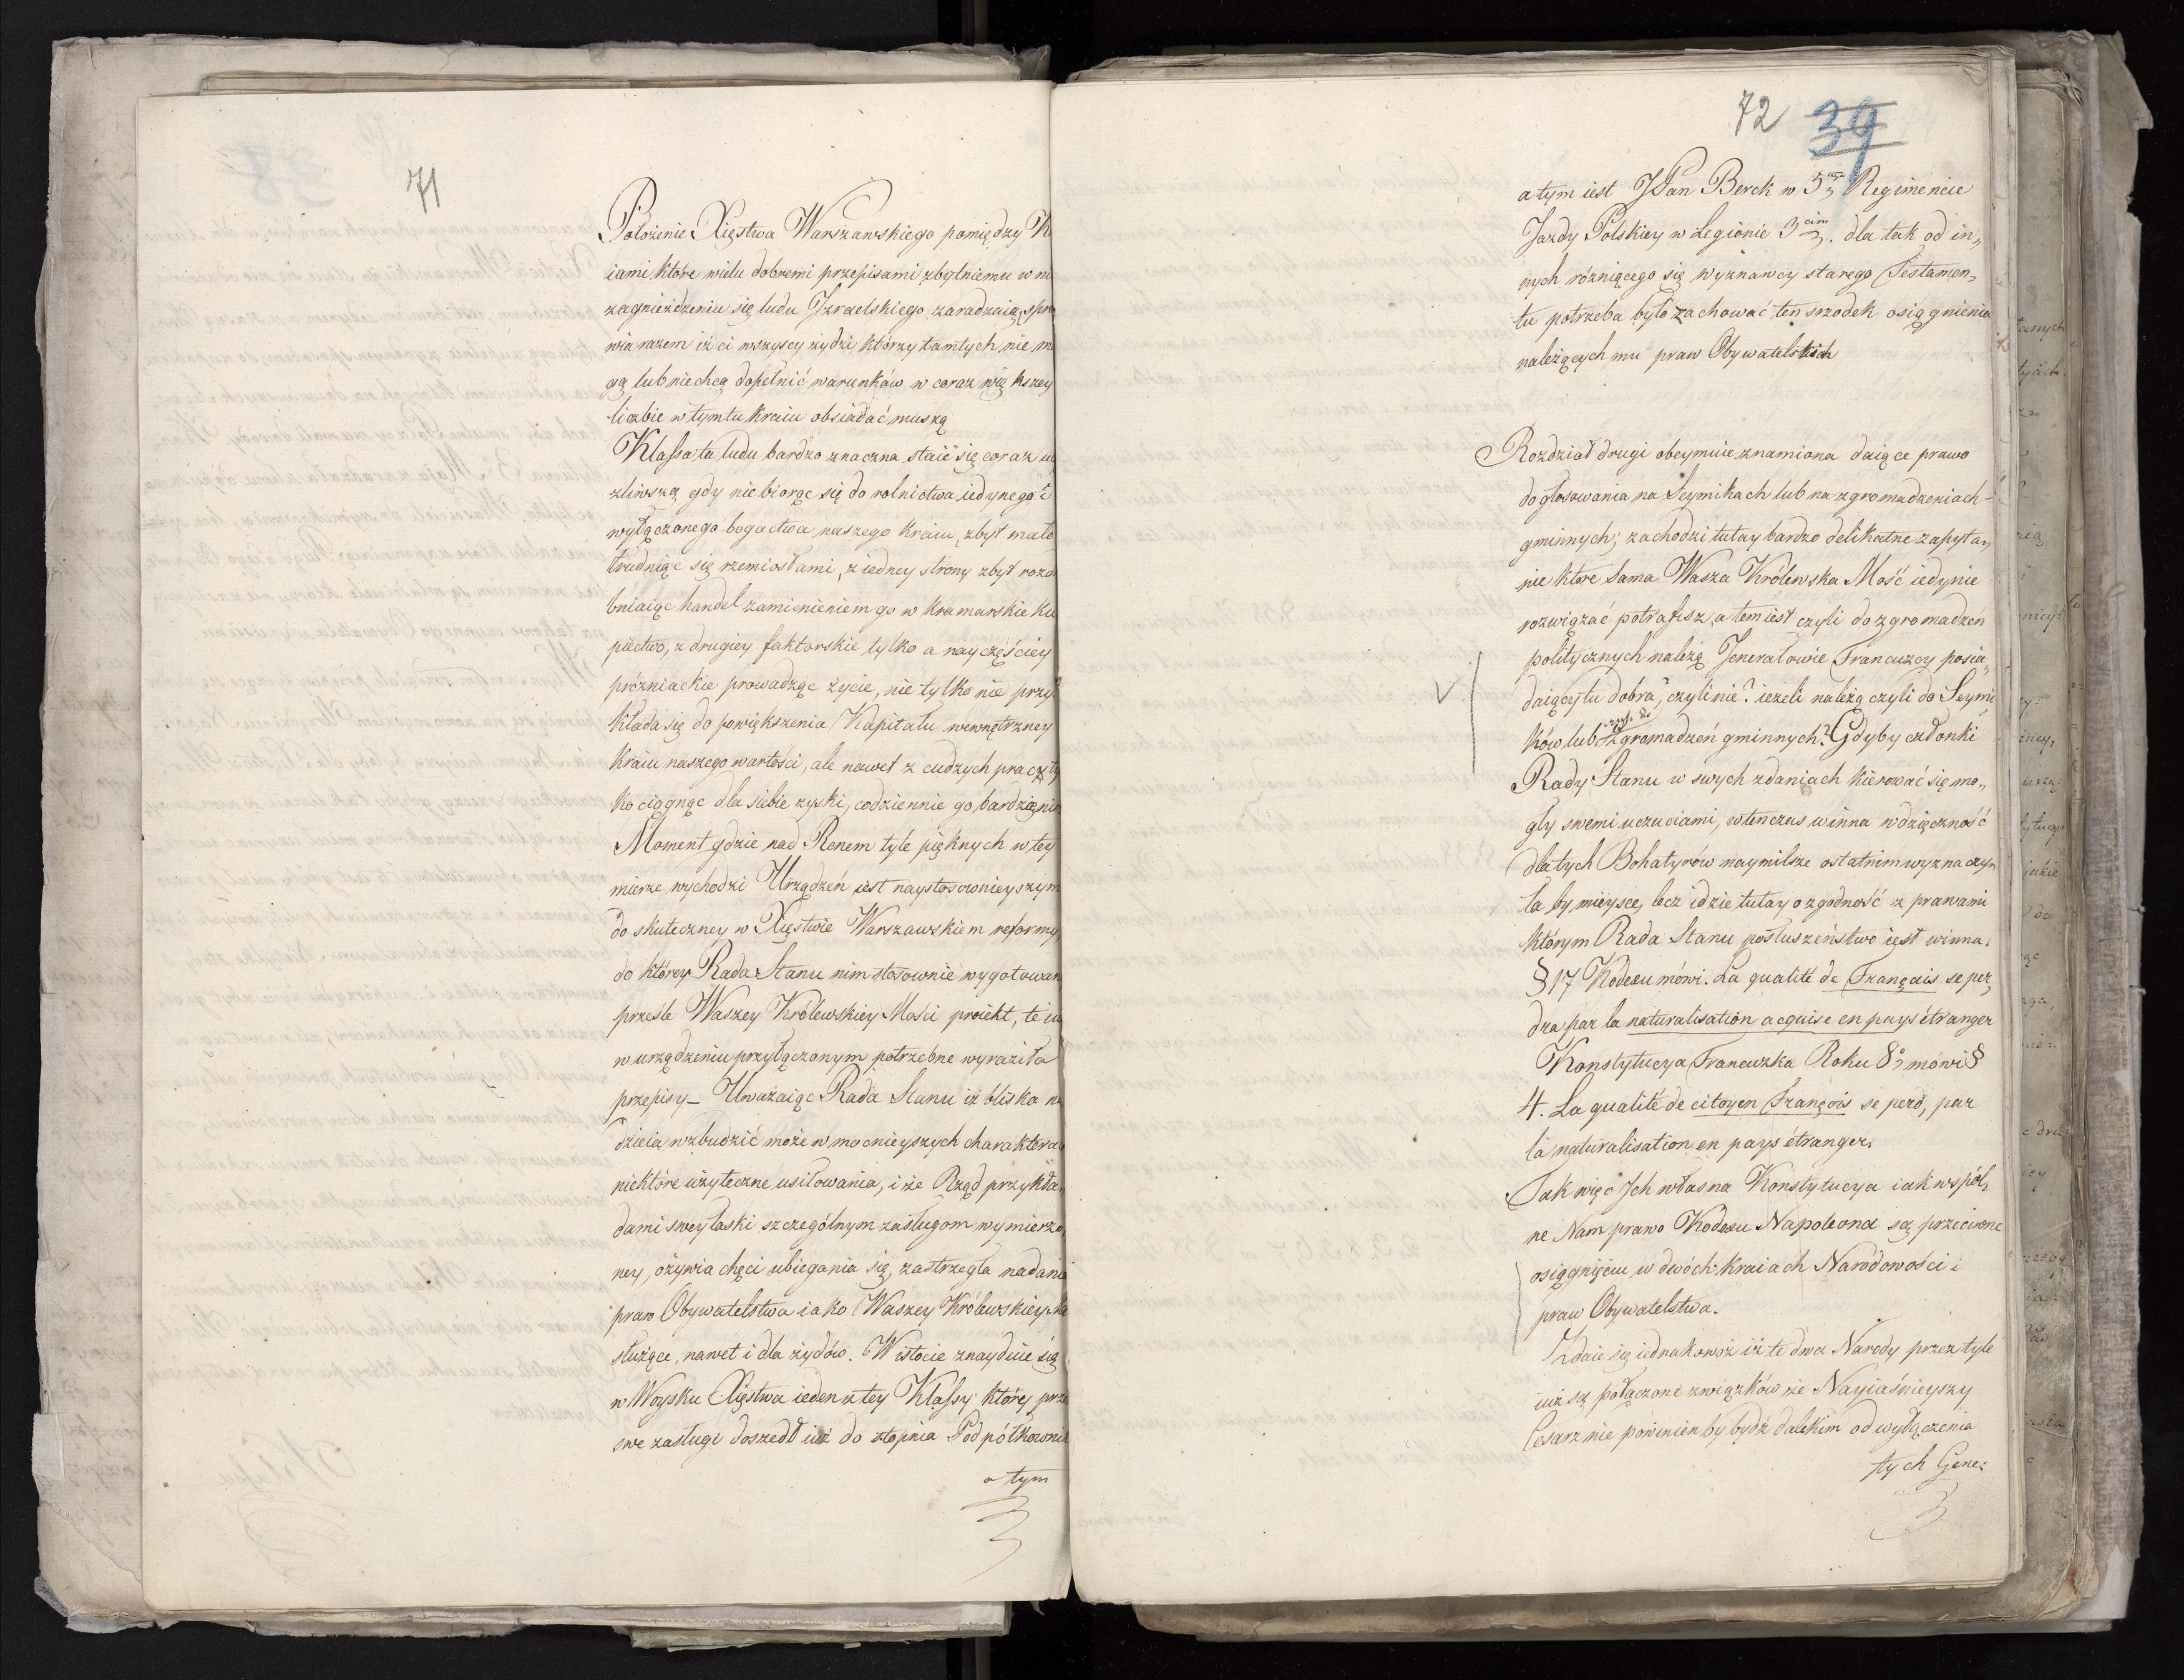 71
Położenie Xięstwa Warszawskiego pomiędzy
iami które wielu dobremi przepisami zbytniemu w
zagnieżdzeniu się ludu Izraelskiego zaradzaią,
wia razem iż ci wszyscy żydzi którzy tamtych nie m
gą lub niechcą dopełnić warunków w coraz większey
liczbie w tym tu Kraiu obsiadać muszą
Klassa ta ludu bardzo znaczna staie się coraz
żliwszą gdy niebiorąc się do rolnictwa iedynego i
wyłączonego bogactwa naszego kraiu, zbyt mało
trudniąc się rzemiosłami, z iedney strony zbyt
bniaiąc handel zamienieniem go w kramarskie Ku
piectwo, z drugiey faktorskie tylko a nayczęściey
próżniackie prowadząc życie, nie tylko nie przy
kłada się do powiększenia Kapitału wewnętrzney
Kraiu naszego wartości, ale nawet z cudzych pracy
ko ciągnąc dla siebie zyski, codziennie go bardziey
Moment gdzie nad Renem tyle pięknych w tey
mierze wychodzi Urządzeń iest naystosownieyszym
do skuteczney w Xięstwie Warszawskiem reformy
do którey Rada Stanu nim stosownie wygotowan
prześle Waszey Królewskiey Mości proiekt, te
w urządzeniu przyłączonym potrzebne wyraziła
przepisy_ Uważaiąc Rada Stanu iż bliska na
dzieia wzbudzić może w mocnieyszych charakterac
niektóre użyteczne usiłowania, i że Rząd przykła
dami swey łaski szczególnym zasługom wymierzo
ney, ożywia chęci ubiegania się, zastrzegła nadani
praw Obywatelstwa iako Waszey Królewskiey
służące, nawet i dla żydów. W istocie znayduie się
w Woysku Xięstwa ieden z tey Klassy który prze
swe zasługi doszedł iuż do stopnia Podpółkowni
a tym
72 39
a tym iest JPan Berek w 5 Regimencie
Jazdy Polskiey w Legionie 3cim. dla tak od in„
nych różniącego się wyznawcy starego Testamen„
tu potrzeba było zachować ten srzodek osiągnienia
należących mu praw Obywatelskich
Rozdział drugi obeymuie znamiona daiące prawo
do głosowania na Seymikach lub na zgromadzeniach
gminnych; zachodzi tutay bardzo delikatne zapyta„
nie które sama Wasza Królewska Mość iedynie
rozwiązać potrafisz, a tem iest czyli do zgromadzeń
politycznych należą Jenerałowie Francuzcy posia„
daiący tu dobra, czyli nie? ieżeli należą czyli do Seymi
ków lub zgromadzeń gminnych? Gdyby członki
Rady Stanu w swych zdaniach kierować się mo„
gły swemi uczuciami, wtenczas winna wdzięczność
dla tych Bohatyrów naymilsze ostatnim wyznaczy
ła by mieysce, lecz idzie tutay o zgodność z prawami
którym Rada Stanu posłuszeństwo iest winna.
§ 17 Kodexu mówi. La qualité de Français se per„
dra par la naturalisation acquise en pays étranger
Konstytucya Francuzka Roku 8º mówi §
4. La qualité de citoyen François se perd, par
la naturalisation en pays étranger.
Tak więc Ich własna Konstytucya iak wspól„
ne Nam prawo Kodexu Napoleona są przeciwne
osiągnięciu w dwóch kraiach Narodowości i
praw Obywatelstwa.
Zdaie się iednakowoż iż te dwa Narody przez tyle
iuż są połączone związków że Nayiaśnieyszy
Cesarz nie powinien by bydź dalekim od wyłączenia
tych Gene: